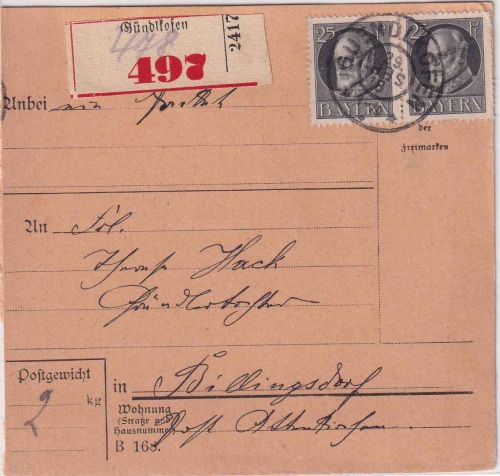 Gündlkofen
2417
497
25
BAYERN
25 F
BAYERN
Anbei ein Paket
der
Freimarken
An Frl.
Therese Hack
in Billingsdorf
Postgewicht
2 kg
Wohnung
(Straße und
Hausnummer)
B 168.
Post